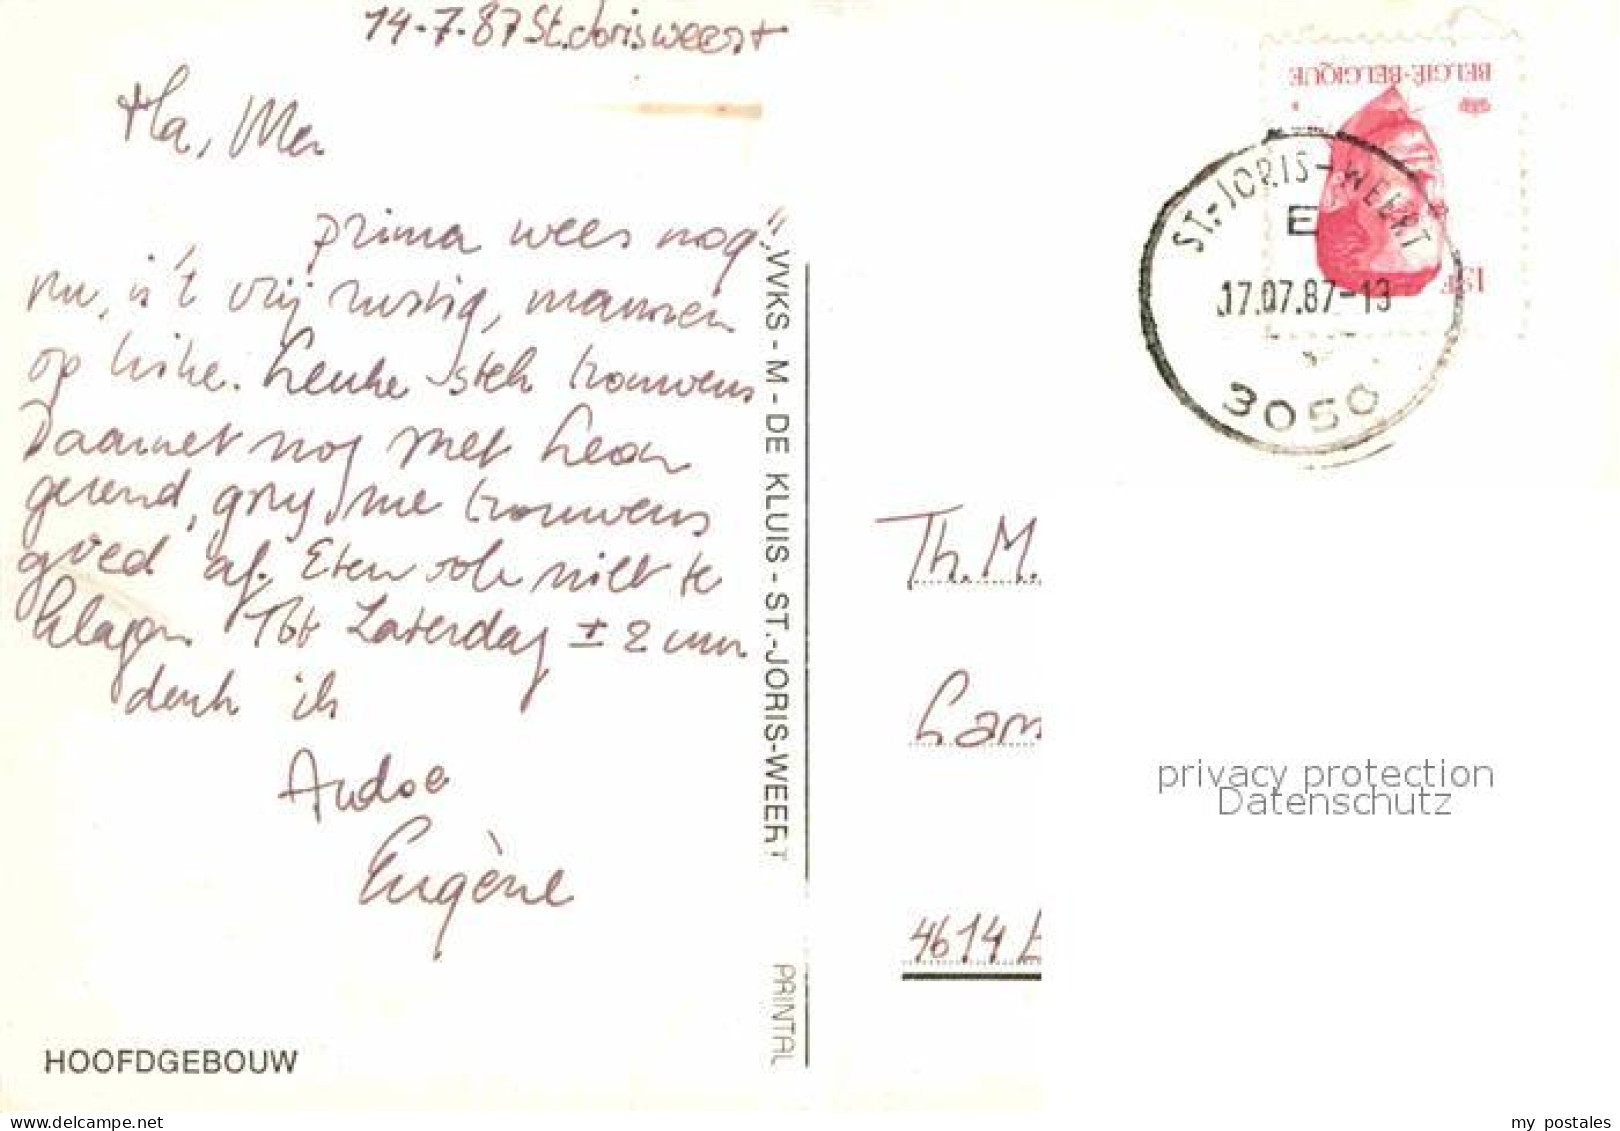 14-7-87 St. Jorisweert
Ha, Men
prima weer nog
nu, is 't vrij rustig, mannen
op hike. Leuke stek trouwens
Daarnet nog met Leon
gerend, ging me trouwens
goed af. Eten ook niet te
klagen. Tot Zaterdag ± 2 uur
denk ik
Audoe
Eugène
HOOFDGEBOUW
VVKS - M - DE KLUIS - ST.-JORIS-WEERT
PRINTAL
BELGIË-BELGIQUE
13F
ST.-JORIS-WEERT
E
17.07.87-13
3050
Th. M.
Lam
4614
privacy protection
Datenschutz
my postales